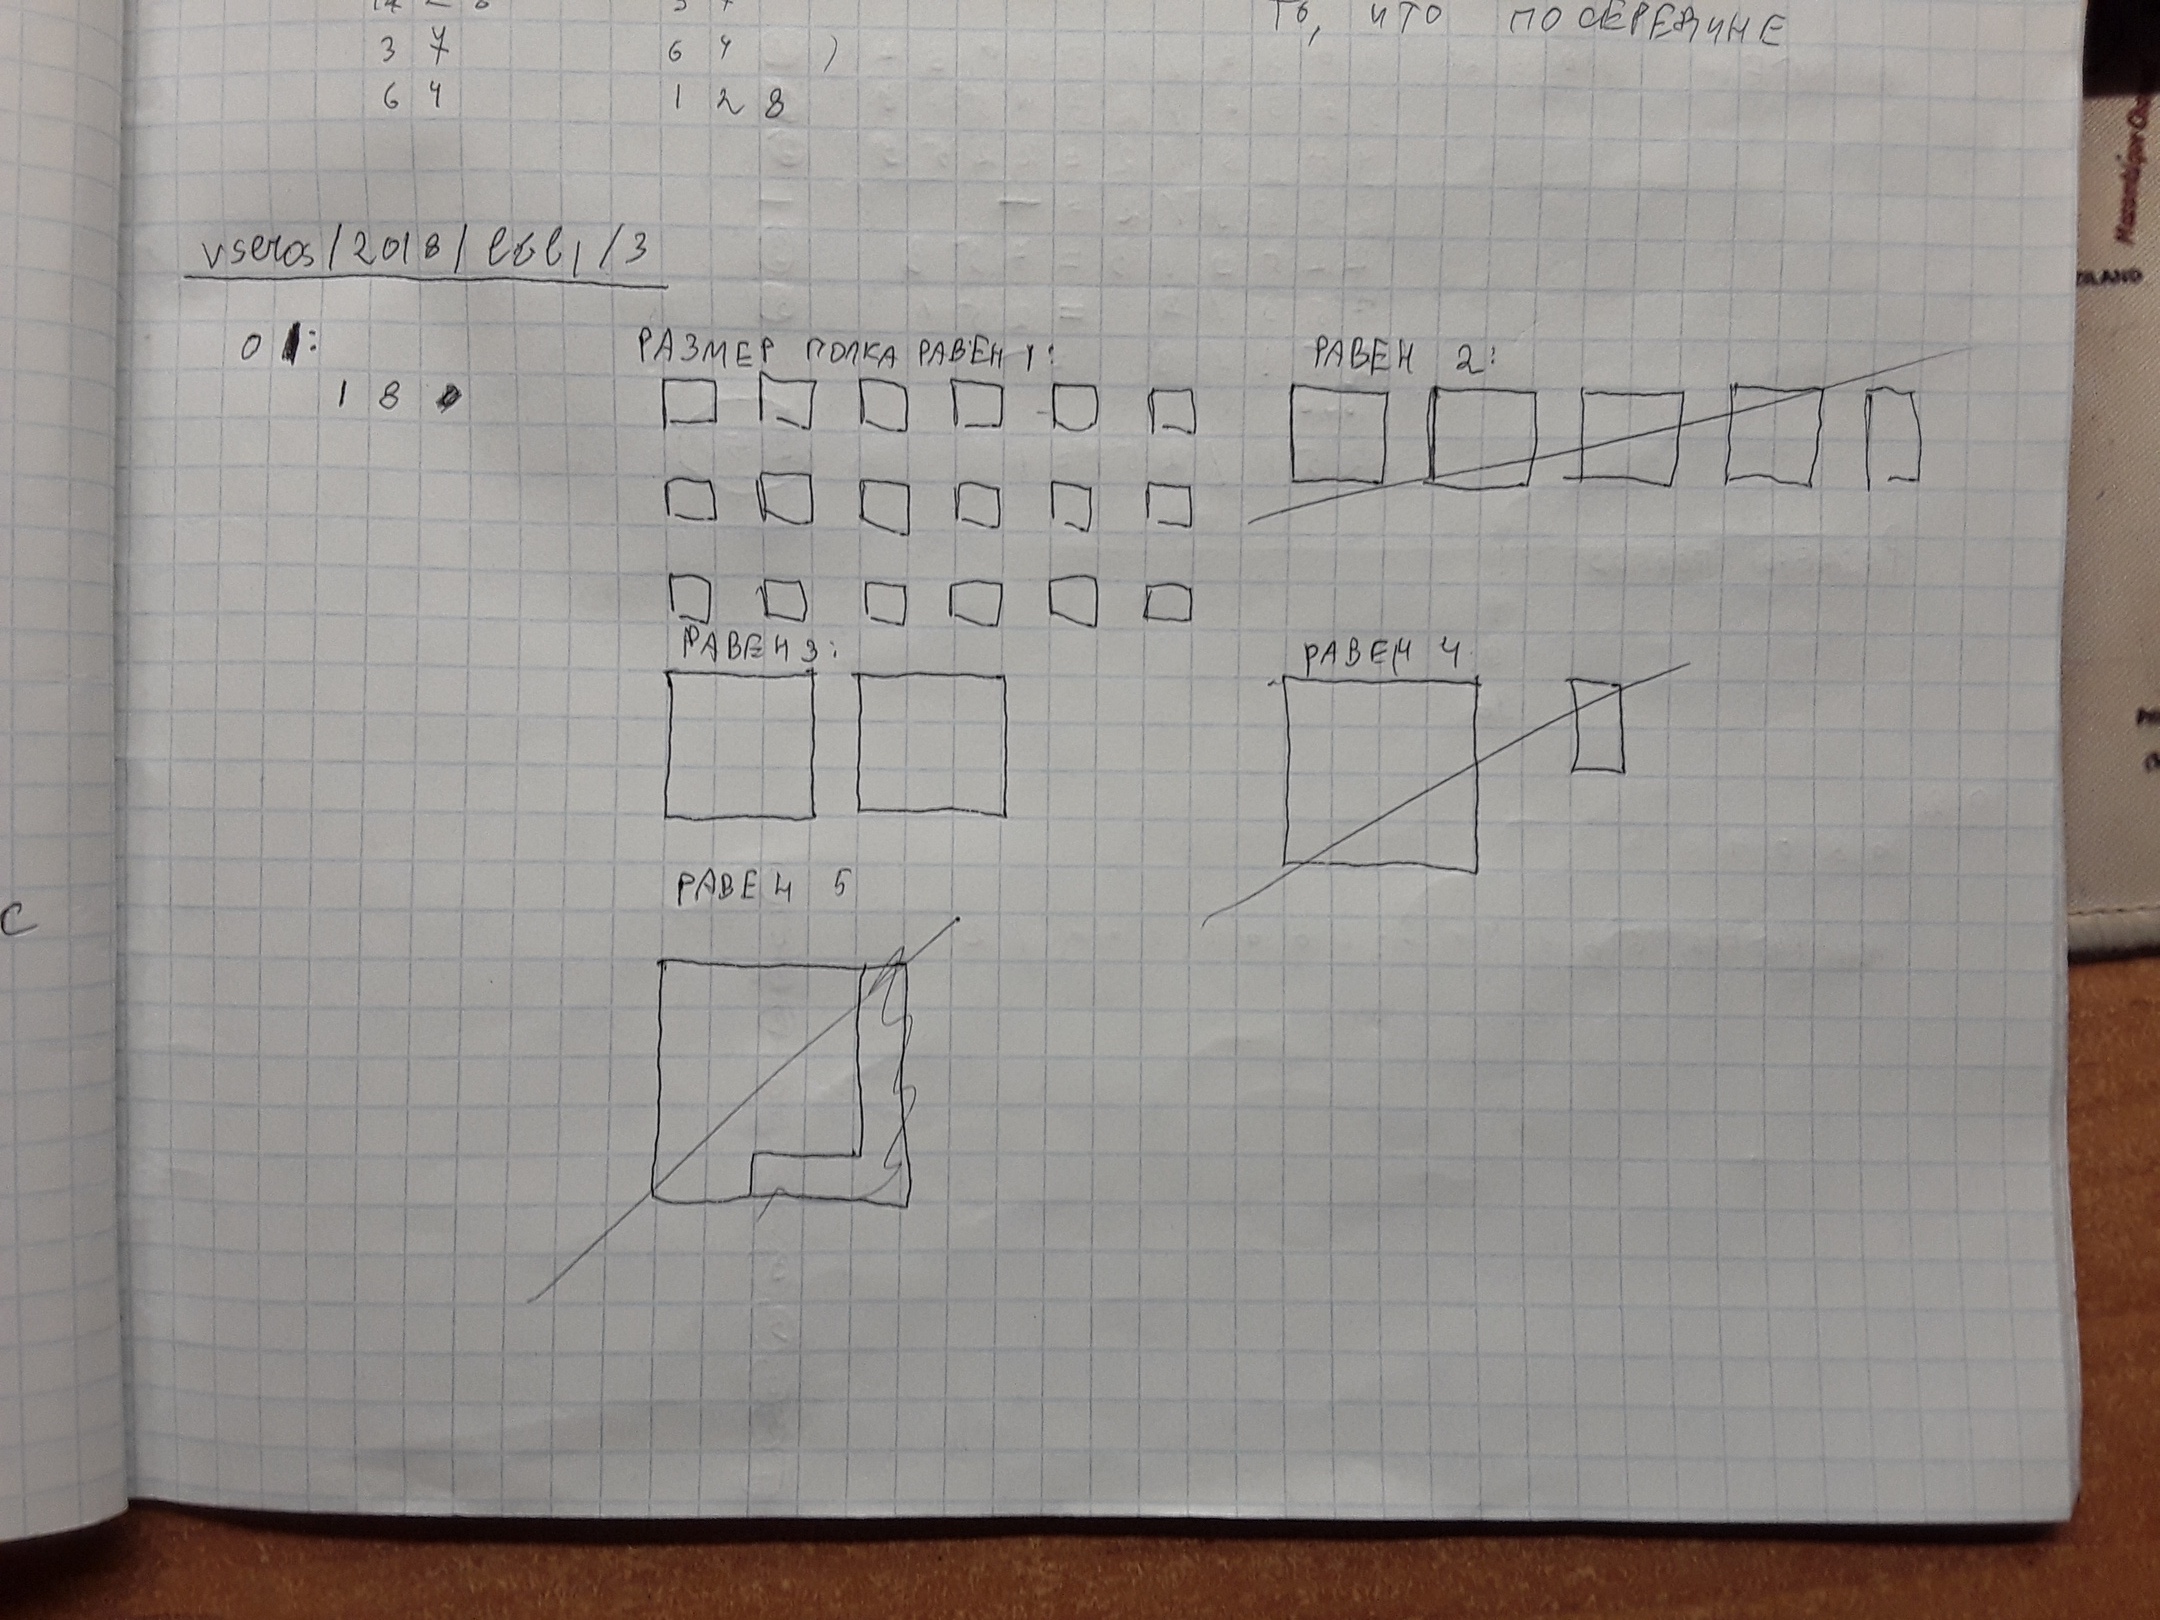 3 7 6 4 )
6 4 1 2 8
ТО, ЧТО ПОСЕРЕДИНЕ
vseros/2018/
01:
1 8
РАЗМЕР ПОЛКА РАВЕН 1:
РАВЕН 2:
РАВЕН 3:
РАВЕН 4
РАВЕН 5
С